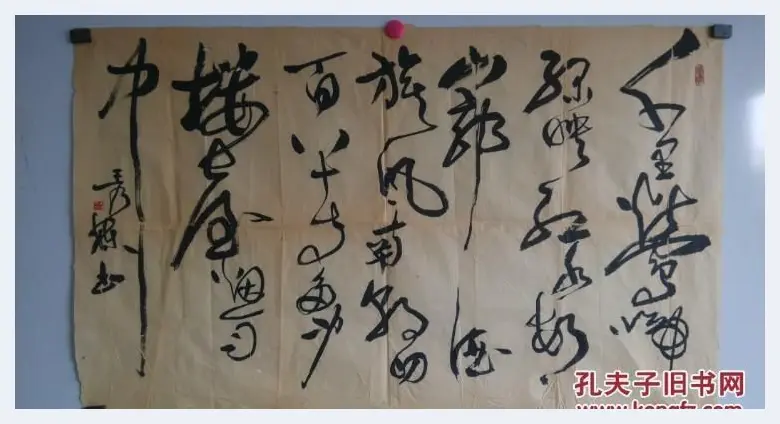 千里鶯啼
綠映紅水村
山郭酒
旗风南朝四
百八十寺多少
樓臺烟雨
中
孔夫子旧书网
www.kongfz.com